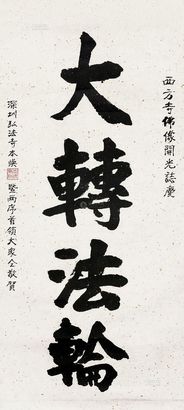 西方寺佛像開光誌慶
大轉法輪
深圳弘法寺本煥
暨兩序首領大眾仝敬賀